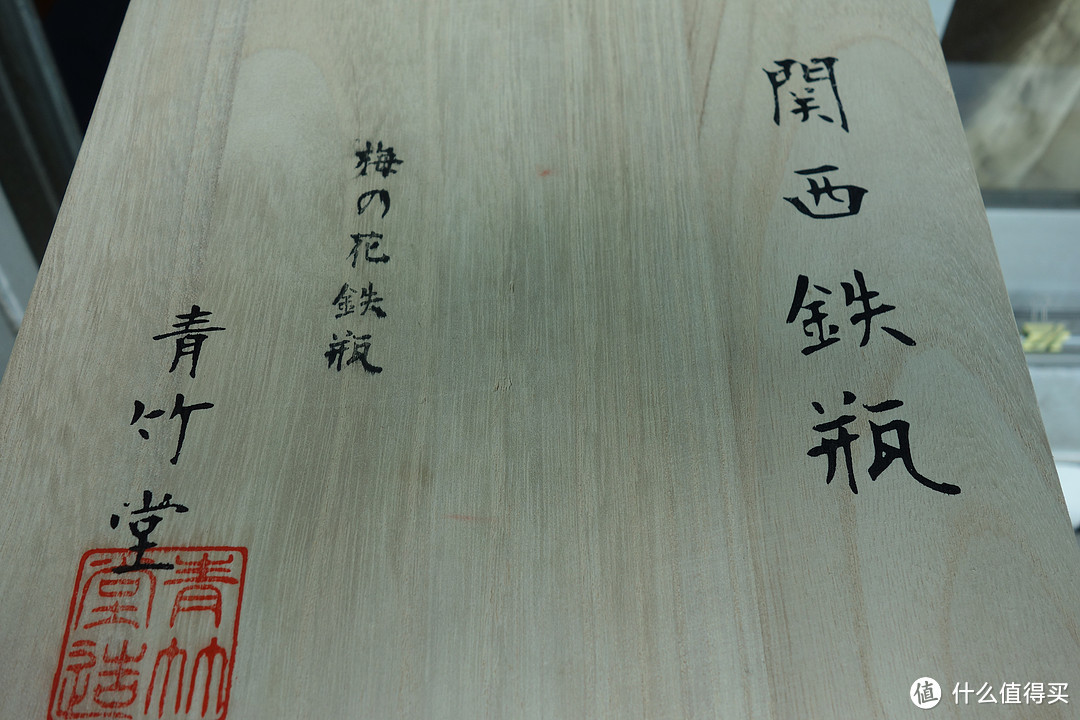 関西鉄瓶
梅の花鉄瓶
青竹堂
青竹堂造
值 什么值得买